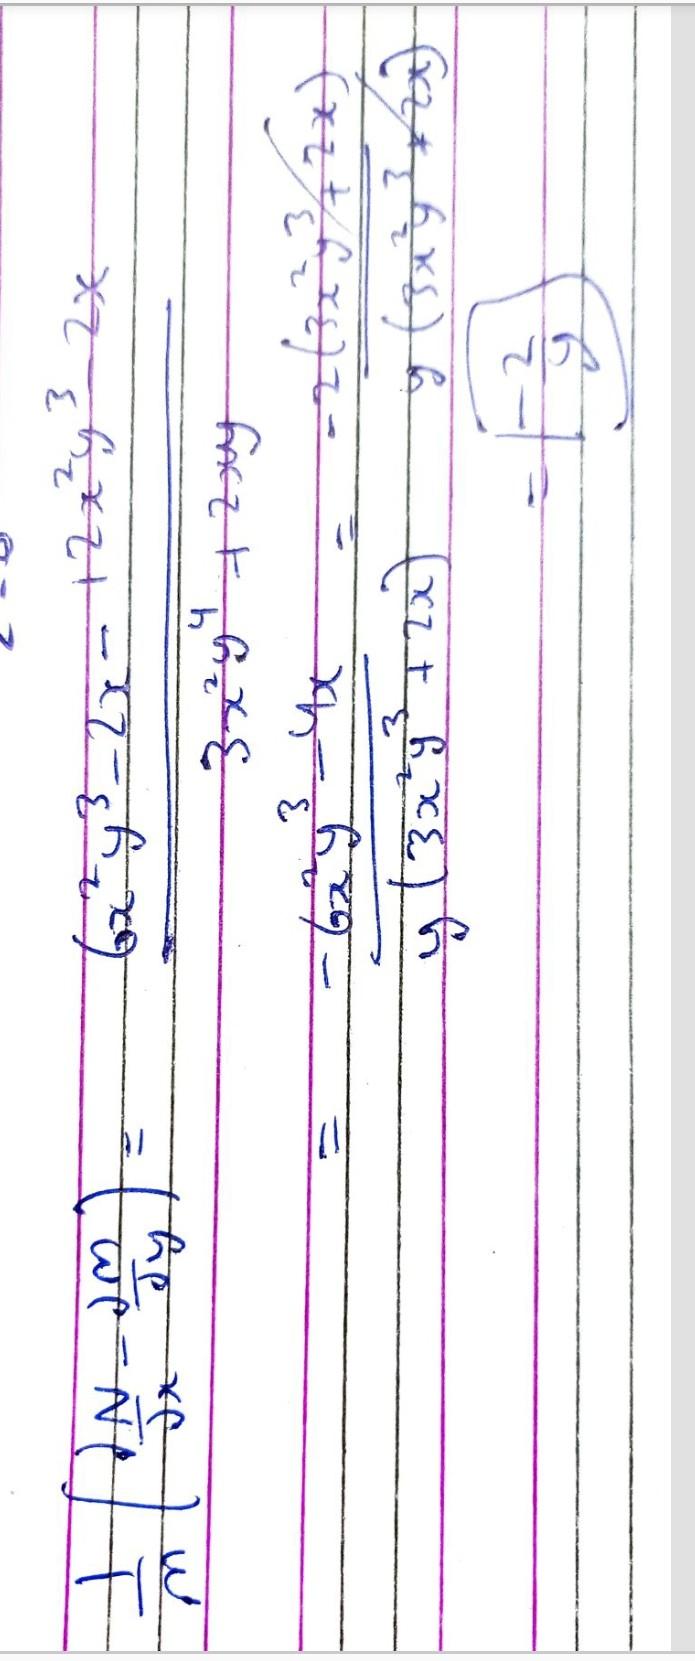 1/M (∂N/∂x - ∂M/∂y) = (6x²y³ - 2x - 12x²y³ - 2x) / (3x²y⁴ + 2xy)
= (-6x²y³ - 4x) / (y(3x²y³ + 2x)) = (-2(3x²y³ + 2x)) / (y(3x²y³ + 2x))
= -2/y